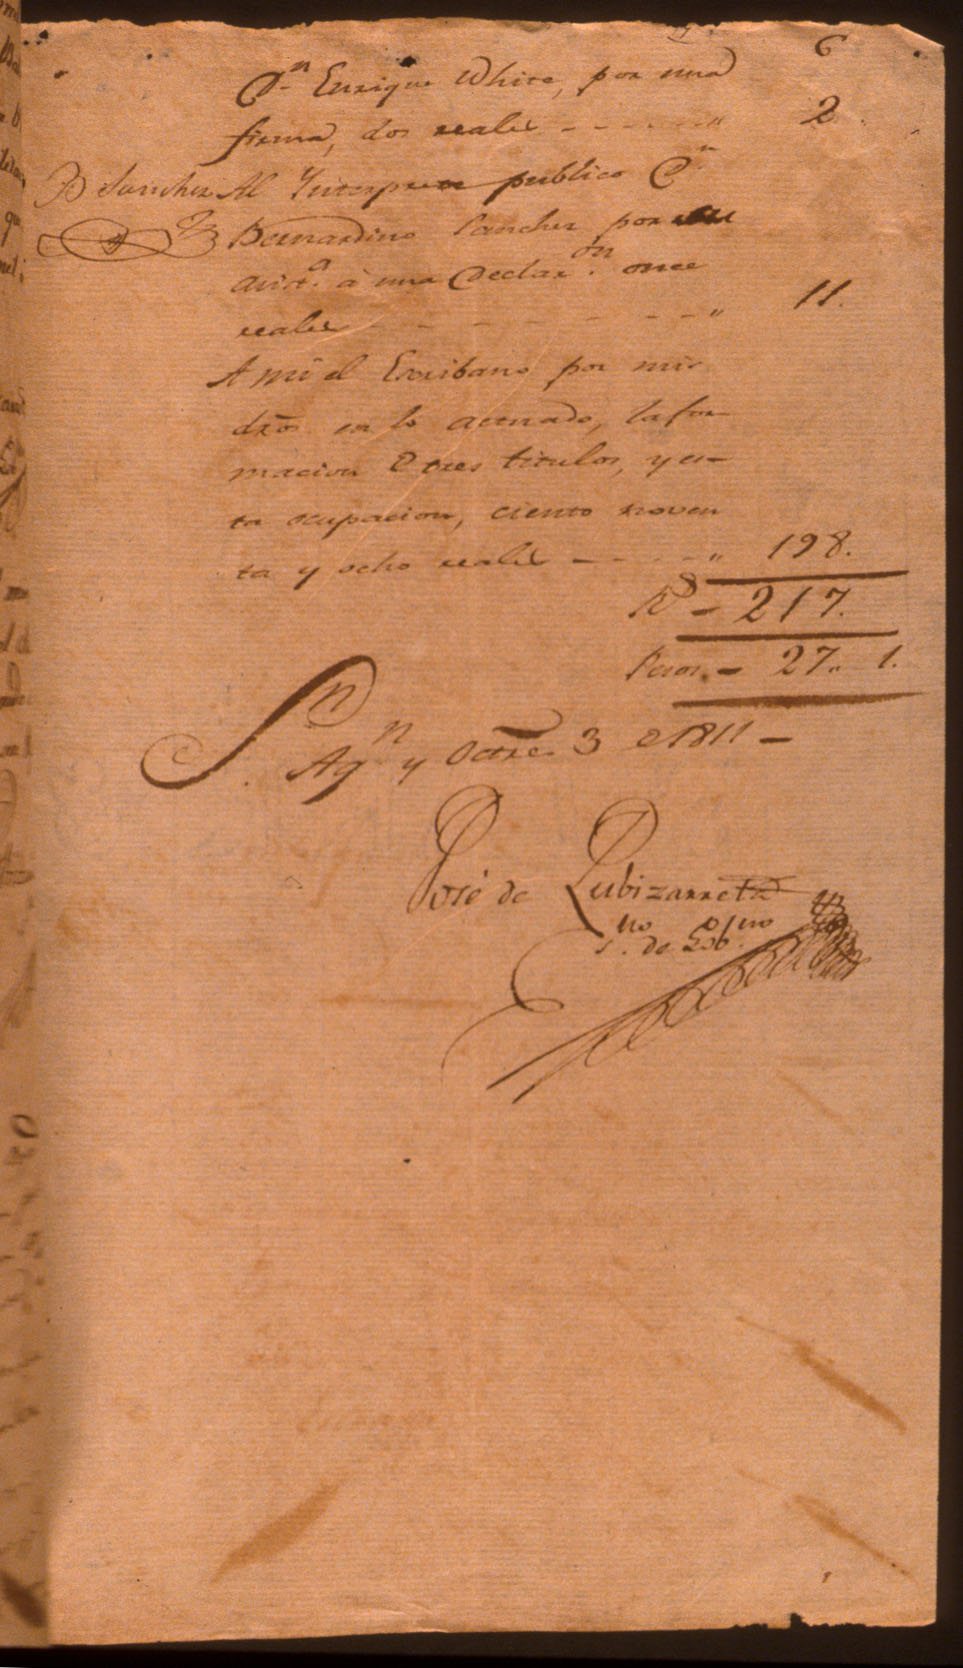 6
Dn. Enrique White, por una
firma, dos reales - - - - - " 2
B Sanchez
Al Interprete publico Dn
Bernardino Sanchez por
asista. à una Declaron. once
reales - - - - - - - - " 11.
A mi el Escribano por mis
dros en lo actuado, la for-
macion de tres titulos, y es-
ta ocupacion, ciento noven
ta y ocho reales - - - - " 198.
Rs - 217.
Pesos - 27.. 1.
Sn. Agn y Octre 3 de 1811 -
José de Zubizarreta
no. de Gobno